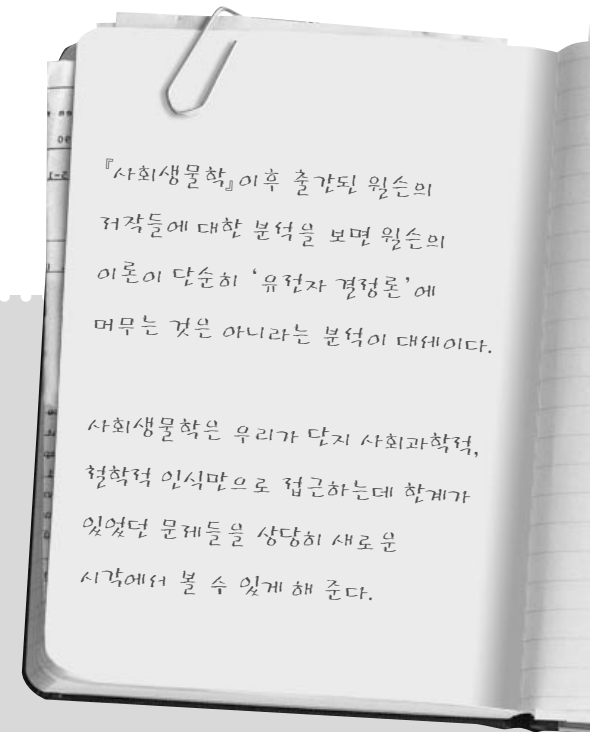 『사회생물학』이후 출간된 윌슨의
저작들에 대한 분석을 보면 윌슨의
이론이 단순히 ‘유전자 결정론’에
머무는 것은 아니라는 분석이 대세이다.
사회생물학은 우리가 단지 사회과학적,
철학적 인식만으로 접근하는데 한계가
있었던 문제들을 상당히 새로운
시각에서 볼 수 있게 해 준다.